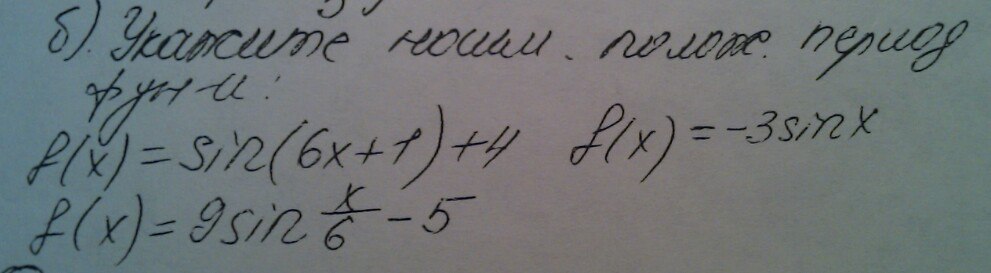 б). Укажите наим. полож. период
фун-и:
f(x) = sin(6x+1)+4 f(x) = -3sinx
f(x) = 9sin x/6 - 5